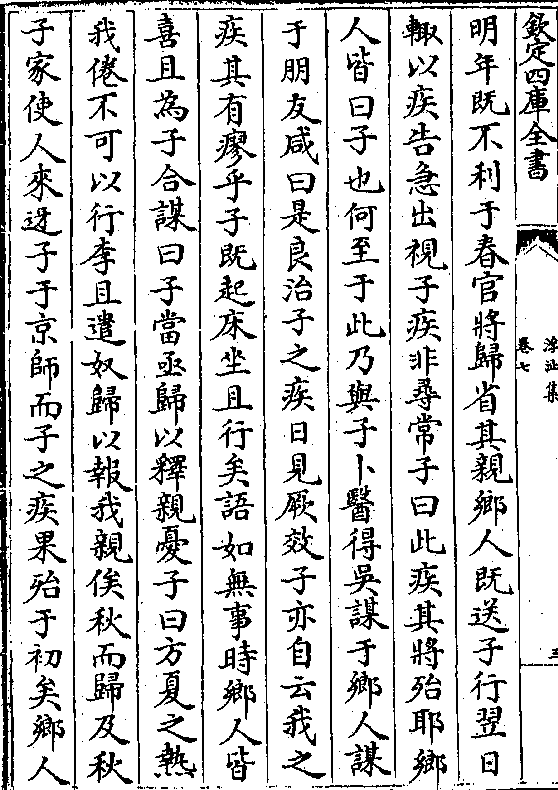 欽定四庫全書
卷七
明年既不利于春官將歸省其親鄉人既送子行翌日
輙以疾告急出視子疾非尋常子曰此疾其將殆耶鄉
人皆曰子也何至于此乃與子卜醫得吳謀于鄉人謀
于朋友咸曰是良治子之疾日見厥效子亦自云我之
疾其有瘳乎子既起床坐且行矣語如無事時鄉人皆
喜且為子合謀曰子當亟歸以釋親憂子曰方夏之熱
我倦不可以行李且遣奴歸以報我親俟秋而歸及秋
子家使人來迓子于京師而子之疾果殆于初矣鄉人